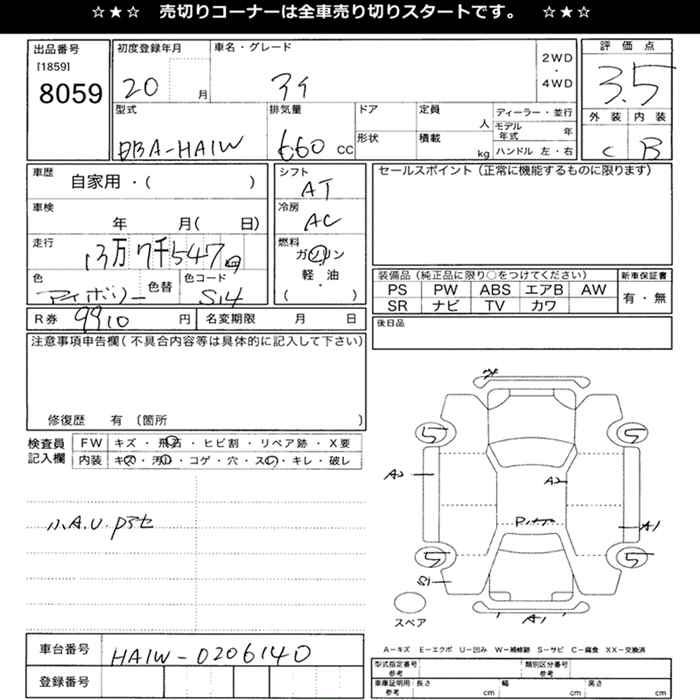 ☆★☆ 売切りコーナーは全車売り切りスタートです。 ☆★☆
出品番号
[1859]
8059
初度登録年月
20 月
車名・グレード
アイ
2WD
・
4WD
評価点
3.5
外装 内装
C B
型式
DBA-HA1W
排気量
660 CC
ドア
形状
定員
人
積載
kg
ディーラー・並行
モデル年式 年
ハンドル 左・右
車歴
自家用・( )
車検
年 月( 日)
走行
13万7千547
色
アイボリー
色替
色コード
S14
シフト
AT
冷房
AC
燃料
ガソリン
・
軽・油
( )
セールスポイント(正常に機能するものに限ります)
装備品(純正品に限り○をつけてください)
PS PW ABS エアB AW
SR ナビ TV カワ
新車保証書
有・無
R券 9910 円 名変期限 月 日
後日品
注意事項申告欄(不具合内容等は具体的に記入して下さい)
修復歴 有 〔箇所 〕
検査員記入欄
FW キズ・飛石・ヒビ割・リペア跡・X要
内装 キズ・汚れ・コゲ・穴・スレ・キレ・破レ
小A.U.
5 5
A2 A2
A1
5 5
S1
A1
スペア
A-キズ E-エクボ U-凹み W-補修跡 S-サビ C-腐食 XX-交換済
車台番号 HA1W-0206140
登録番号
型式指定番号 参考
類別区分番号 参考
車庫証明用 参考 長さ cm 幅 cm 高さ cm